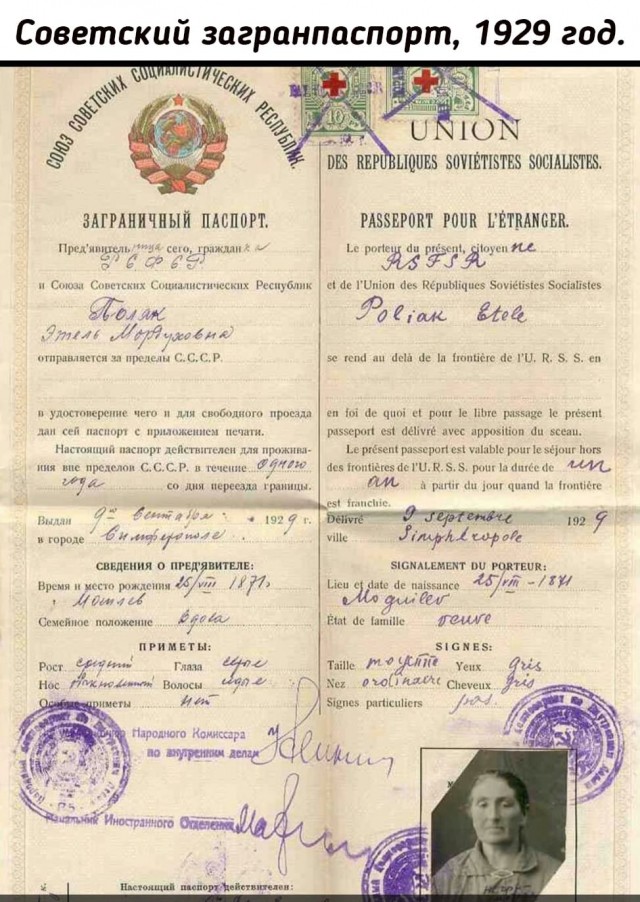 Советский загранпаспорт, 1929 год.
СОЮЗ СОВЕТСКИХ СОЦИАЛИСТИЧЕСКИХ РЕСПУБЛИК.
ЗАГРАНИЧНЫЙ ПАСПОРТ.
Пред'явитель сего, граждан ка
РСФСР
и Союза Советских Социалистических Республик
Поляк
Этель Мордуховна
отправляется за пределы С.С.С.Р.
в удостоверение чего и для свободного проезда
дан сей паспорт с приложением печати.
Настоящий паспорт действителен для прожива-
ния вне пределов С.С.С.Р. в течение одного
года со дня переезда границы.
Выдан 9го Сентября 1929 г.
в городе Симферополе
СВЕДЕНИЯ О ПРЕД'ЯВИТЕЛЕ:
Время и место рождения 25/VIII 1871
Могилев
Семейное положение вдова
ПРИМЕТЫ:
Рост средний Глаза серые
Нос Волосы седые
Особые приметы нет
Народного Комиссара
по внутренним делам
Начальник Иностранного Отделения
Настоящий паспорт действителен:
10
UNION
DES REPUBLIQUES SOVIÉTISTES SOCIALISTES.
PASSEPORT POUR L'ÉTRANGER.
Le porteur du présent, citoyen ne
RSFSR
et de l'Union des Républiques Soviétistes Socialistes
Poliak Etele
se rend au delà de la frontière de l'U. R. S. S. en
en foi de quoi et pour le libre passage le présent
passeport est délivré avec apposition du sceau.
Le présent passeport est valable pour le séjour hors
des frontières de l'U. R. S. S. pour la durée de un
an à partir du jour quand la frontière
est franchie.
Délivré 9 septembre 1929
ville Simphéropole
SIGNALEMENT DU PORTEUR:
Lieu et date de naissance 25/VIII - 1871
Moguilev
État de famille veuve
SIGNES:
Taille moyenne Yeux gris
Nez ordinaire Cheveux gris
Signes particuliers pas.